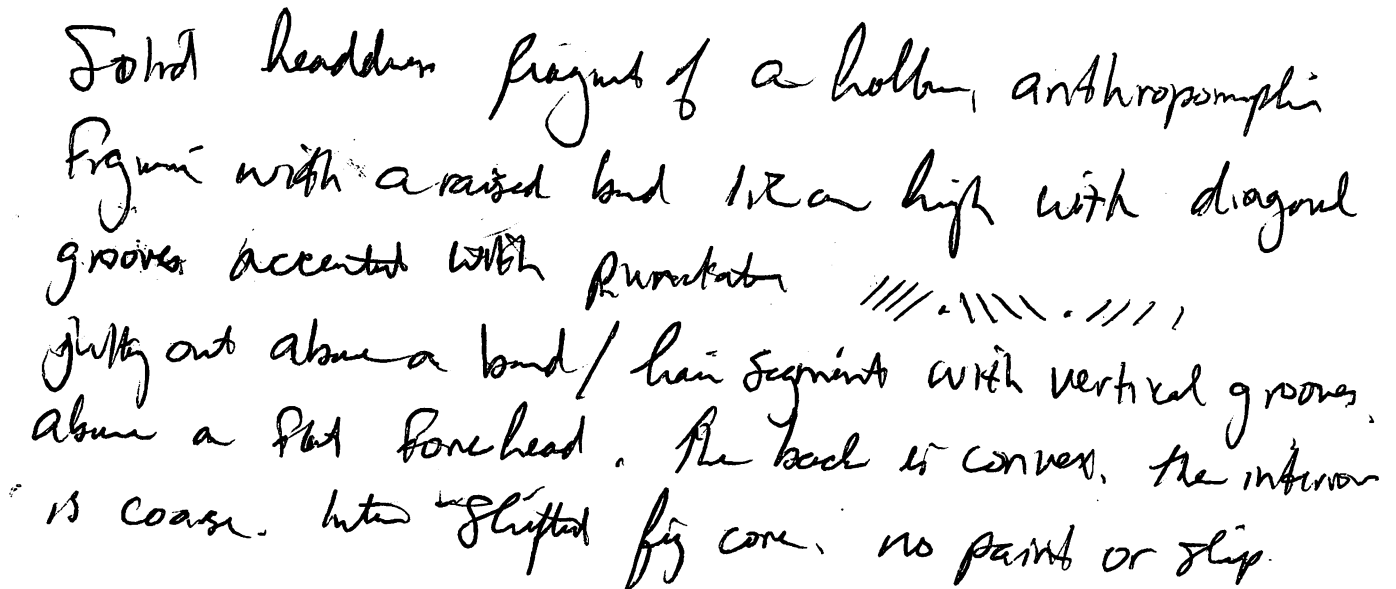 Solid headdress fragment of a hollow, anthropomorphic
figurine with a raised band 1.2 cm high with diagonal
grooves accented with punctate //// . \\\\ . ////
jutting out above a band / hair segment with vertical grooves.
above a flat forehead. The back is convex. the interior
is coarse. fig core. no paint or slip.